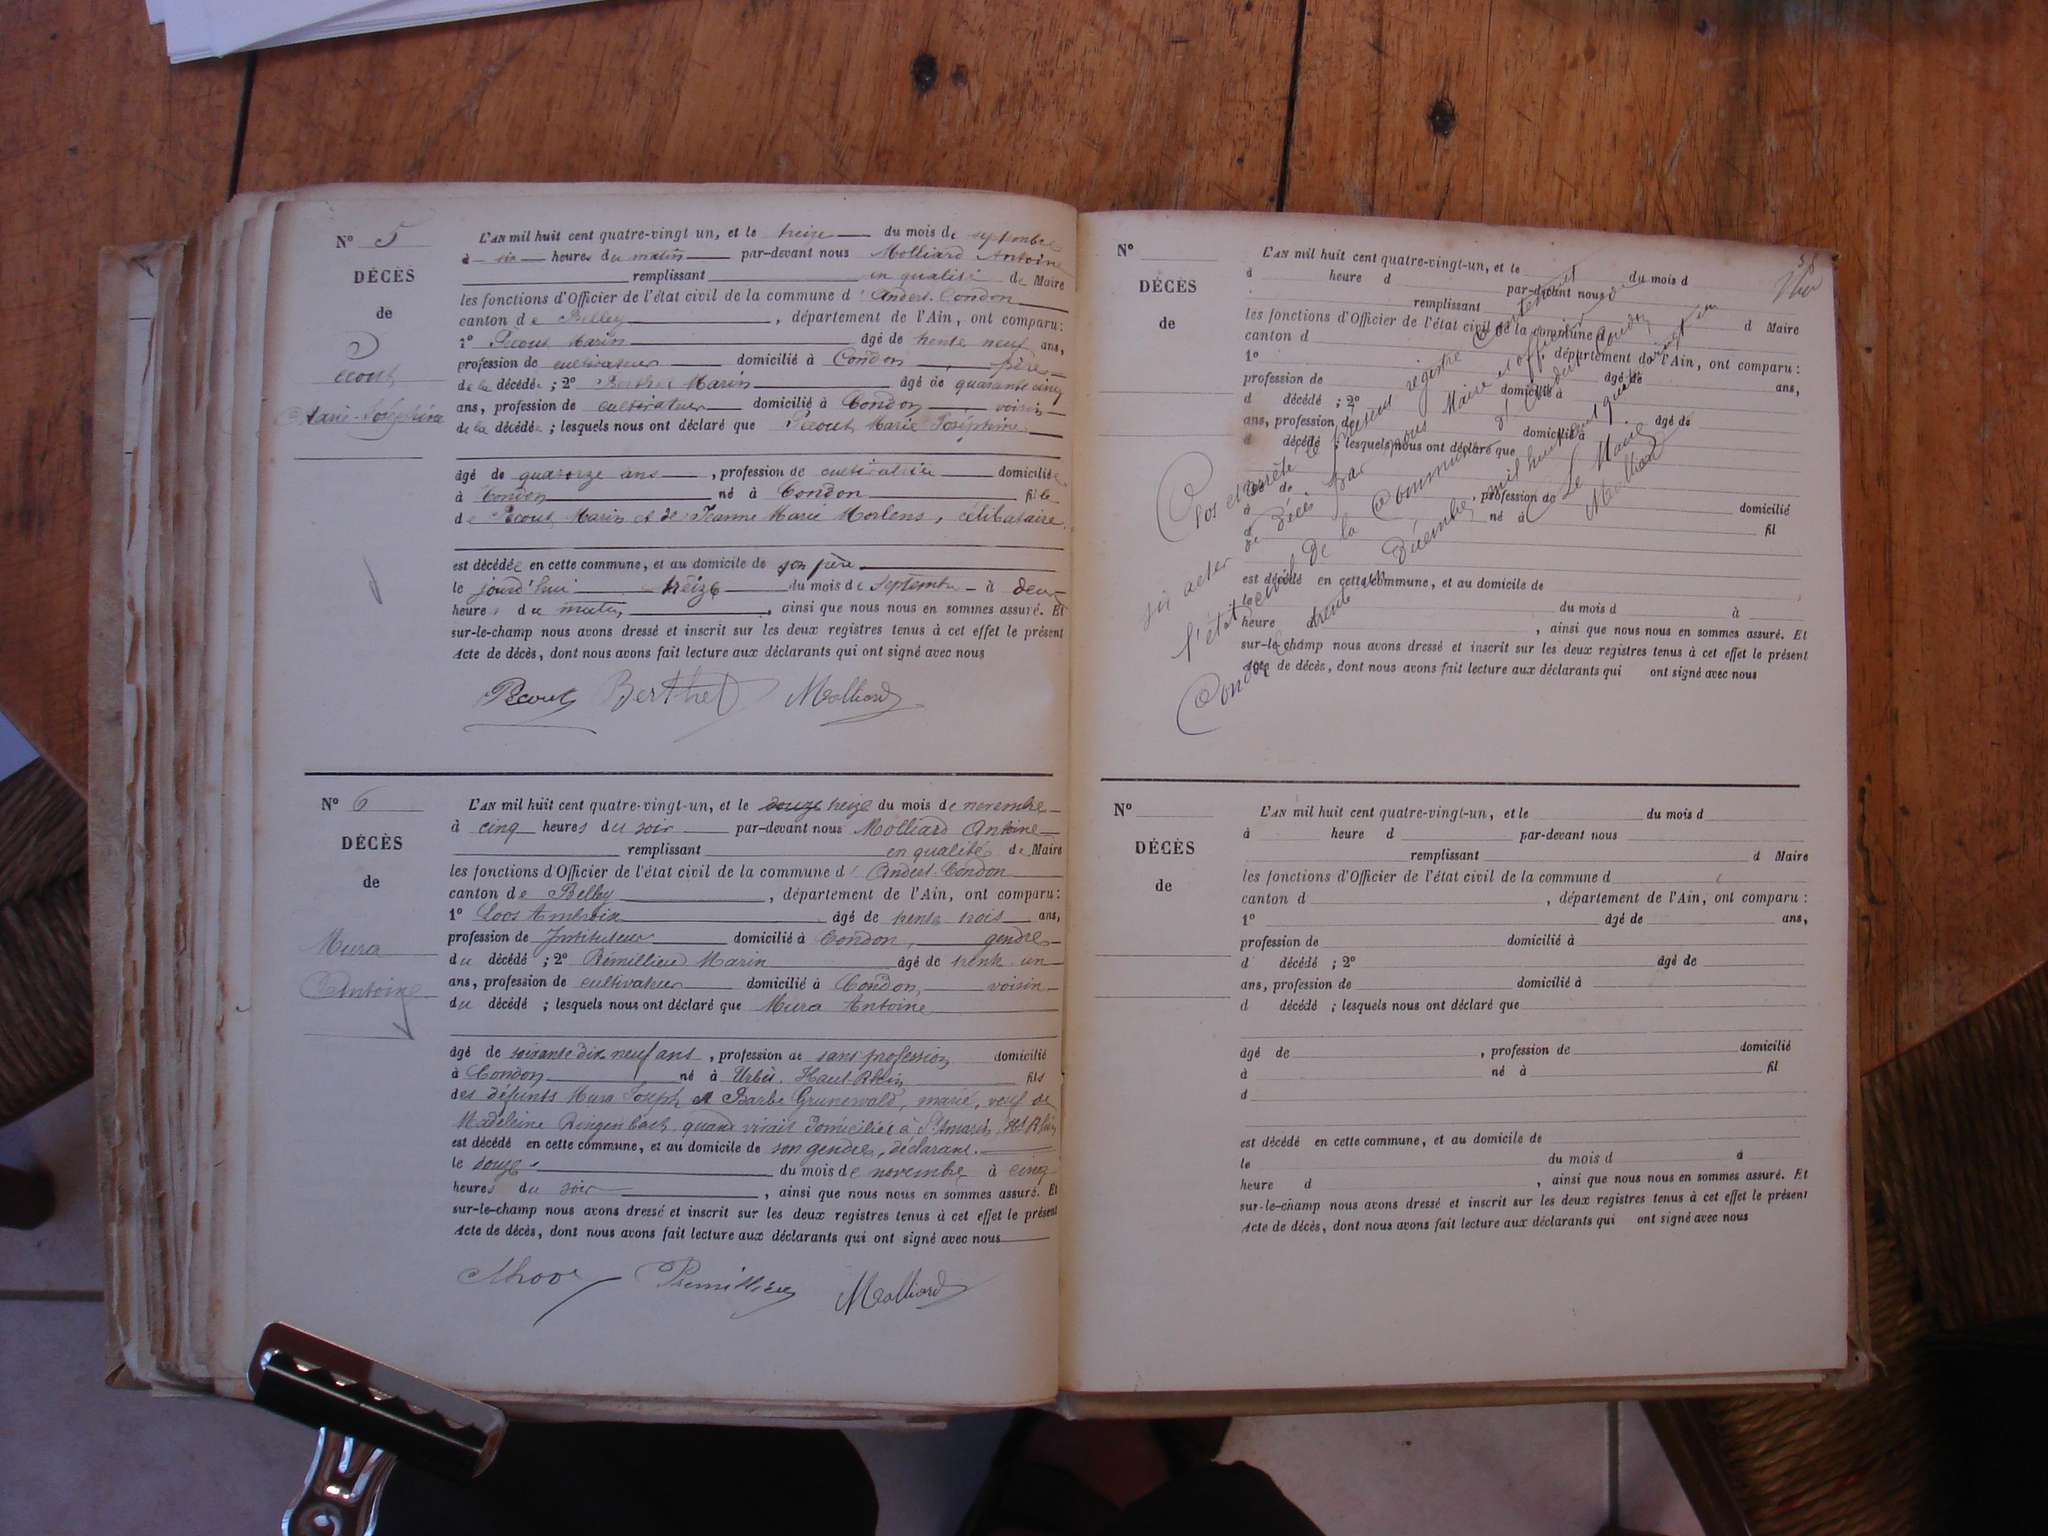 N° 5
DÉCÈS
de
Pecout
Marie-Joséphine
L'AN mil huit cent quatre-vingt un, et le treize du mois de septembre
à six heures du matin par-devant nous Molliard Antoine
remplissant en qualité de Maire
les fonctions d'Officier de l'état civil de la commune d'Andert-Condon
canton de Belley, département de l'Ain, ont comparu:
1° Pecout Marin âgé de trente neuf ans,
profession de cultivateur domicilié à Condon père
de la décédée; 2° Berthet Marin âgé de quarante cinq
ans, profession de cultivateur domicilié à Condon voisin
de la décédée; lesquels nous ont déclaré que Pecout Marie Joséphine
âgé de quatorze ans, profession de cultivatrice domiciliée
à Condon né à Condon fille
de Pecout Marin et de Jeanne Marie Morlens, célibataire.
est décédée en cette commune, et au domicile de son père
le jourd'hui treize du mois de septembre à deux
heures du matin, ainsi que nous nous en sommes assuré. Et
sur-le-champ nous avons dressé et inscrit sur les deux registres tenus à cet effet le présent
Acte de décès, dont nous avons fait lecture aux déclarants qui ont signé avec nous
Pecout Berthet Molliard
N° 6
DÉCÈS
de
Mura
Antoine
L'AN mil huit cent quatre-vingt-un, et le douze treize du mois de novembre
à cinq heures du soir par-devant nous Molliard Antoine
remplissant en qualité de Maire
les fonctions d'Officier de l'état civil de la commune d'Andert-Condon
canton de Belley, département de l'Ain, ont comparu:
1° Loos Ambroix âgé de trente trois ans,
profession de Instituteur domicilié à Condon, gendre
du décédé; 2° Rémillieu Marin âgé de trente un
ans, profession de cultivateur domicilié à Condon, voisin
du décédé; lesquels nous ont déclaré que Mura Antoine
âgé de soixante dix neuf ans, profession de sans profession domicilié
à Condon né à Urbès, Haut-Rhin fils
des défunts Mura Joseph et Barbe Grunerwald, marié, veuf de
Madeleine Ringenbach quand vivait domiciliée à St Amarin, Ht Rhin
est décédé en cette commune, et au domicile de son gendre, déclarant.
le douze du mois de novembre à cinq
heures du soir, ainsi que nous nous en sommes assuré. Et
sur-le-champ nous avons dressé et inscrit sur les deux registres tenus à cet effet le présent
Acte de décès, dont nous avons fait lecture aux déclarants qui ont signé avec nous
Rémillieu Molliard
N°
DÉCÈS
de
L'AN mil huit cent quatre-vingt-un, et le du mois d
à heure d par-devant nous
remplissant d Maire
les fonctions d'Officier de l'état civil de la commune d
canton d , département de l'Ain, ont comparu:
1° âgé de ans,
profession de domicilié à
d décédé; 2° âgé de
ans, profession de domicilié à
d décédé; lesquels nous ont déclaré que
âgé de , profession de domicilié
à né à fil
d
est décédé en cette commune, et au domicile de
le du mois d à
heure d , ainsi que nous nous en sommes assuré. Et
sur-le-champ nous avons dressé et inscrit sur les deux registres tenus à cet effet le présent
Acte de décès, dont nous avons fait lecture aux déclarants qui ont signé avec nous
Clos et arrêté le présent registre contenant
six actes de décès par nous Maire et officier de
l'état civil de la Commune d'Andert-Condon
Condon le trente un Décembre mil huit cent quatre vingt un
Le Maire
Molliard
N°
DÉCÈS
de
L'AN mil huit cent quatre-vingt-un, et le du mois d
à heure d par-devant nous
remplissant d Maire
les fonctions d'Officier de l'état civil de la commune d
canton d , département de l'Ain, ont comparu:
1° âgé de ans,
profession de domicilié à
d décédé; 2° âgé de
ans, profession de domicilié à
d décédé; lesquels nous ont déclaré que
âgé de , profession de domicilié
à né à fil
d
est décédé en cette commune, et au domicile de
le du mois d à
heure d , ainsi que nous nous en sommes assuré. Et
sur-le-champ nous avons dressé et inscrit sur les deux registres tenus à cet effet le présent
Acte de décès, dont nous avons fait lecture aux déclarants qui ont signé avec nous